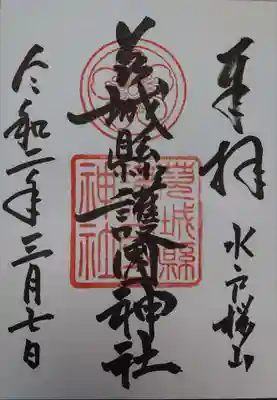 奉拝
水戸桜山
茨城縣護國神社
茨城縣
護國
神社
令和二年三月七日